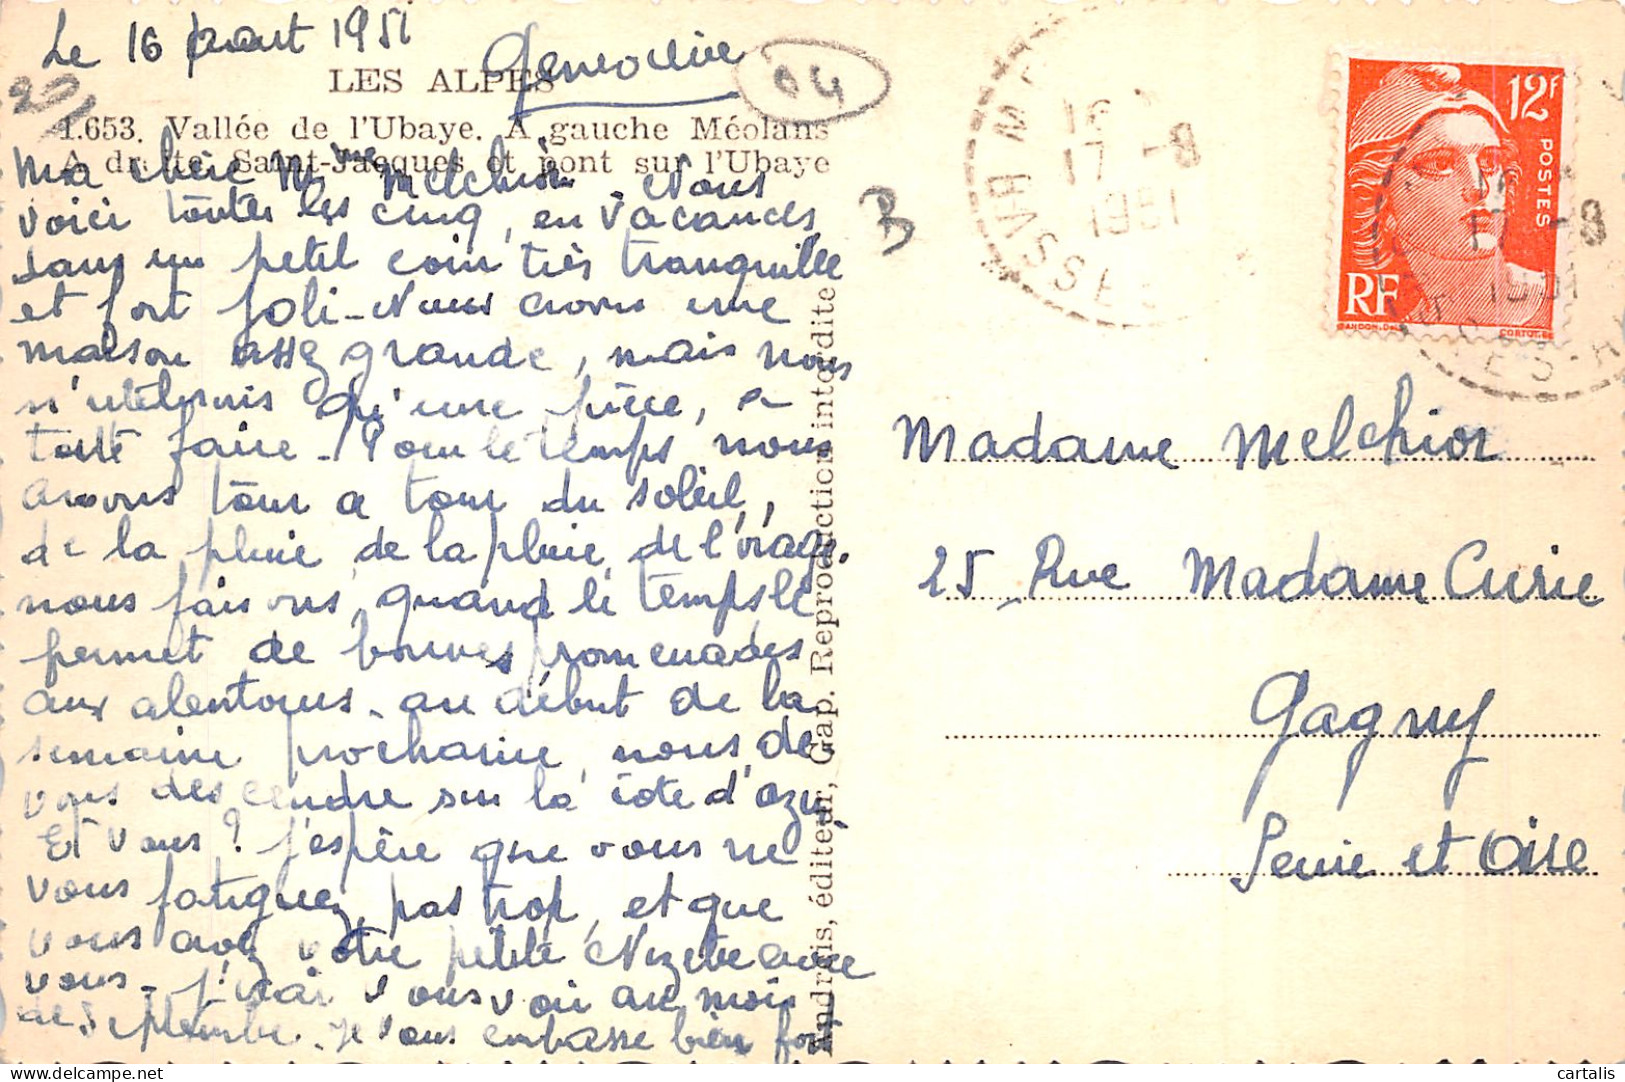 Le 16 aout 1951
Geneviève
LES ALPES
04
1.653. Vallée de l'Ubaye. A gauche Méolans
A droite Saint-Jacques et pont sur l'Ubaye
Ma chère Mme Melchior. Nous
voici toutes les cinq, en vacances
dans un petit coin très tranquille
et fort joli. Nous avons une
maison assez grande, mais nous
n'utilisons qu'une pièce, a
tout faire. Pour le temps, nous
avons tour a tour du soleil,
de la pluie, de la pluie, de l'orage.
nous faisons, quand le temps le
permet de bonnes promenades
aux alentours. au début de la
semaine prochaine, nous de
vons descendre sur la côte d'azur.
Et vous? J'espère que vous ne
vous fatiguez pas trop, et que
vous avez votre petite avec
vous. J'irai vous voir au mois
de Septembre. Je vous embrasse bien fort
Andreis, éditeur, Gap. Reproduction interdite
B
16
17 -8
1951
12F
POSTES
RF
GANDON.DEL
CORTOT.SC
17 -8
1951
Madame Melchior
25 Rue Madame Curie
Gagny
Seine et Oise
cartalis